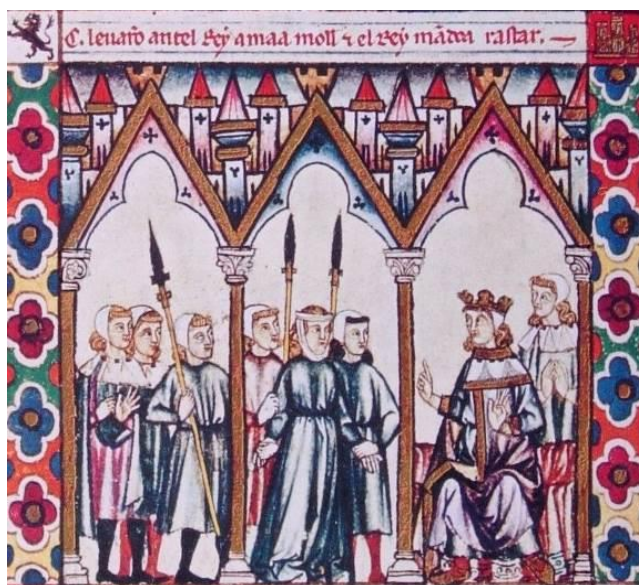 C. leuarõ antel Rey amaa moll ⁊ el Rey mãdoa rastar.